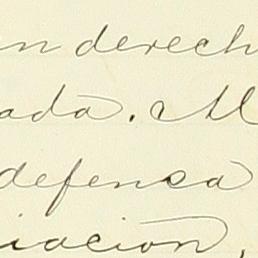 un derech
ada. M
defensa
iacion,